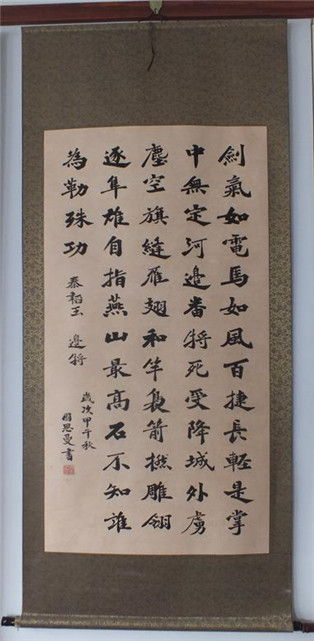 劍氣如電馬如風百捷長輕是掌
中無定河邊番將死受降城外虜
塵空旗縫雁翅和竿裊箭撚雕翎
逐隼雄自指燕山最高石不知誰
為勒殊功 秦韜玉 邊將
歲次甲午秋
周思曼書